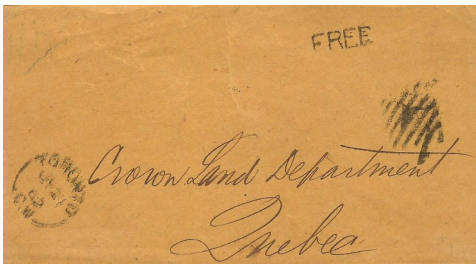 FREE
TORONTO
C.W.
Crown Land Department
Quebec